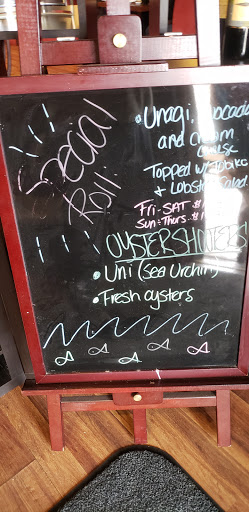 Special
Roll
• Unagi, avocado
and cream
cheese
Topped w/
+ Lobster Salad
Fri-SAT $
Sun-Thurs $
OYSTER SHOOTERS
• Uni (Sea Urchin)
• Fresh oysters